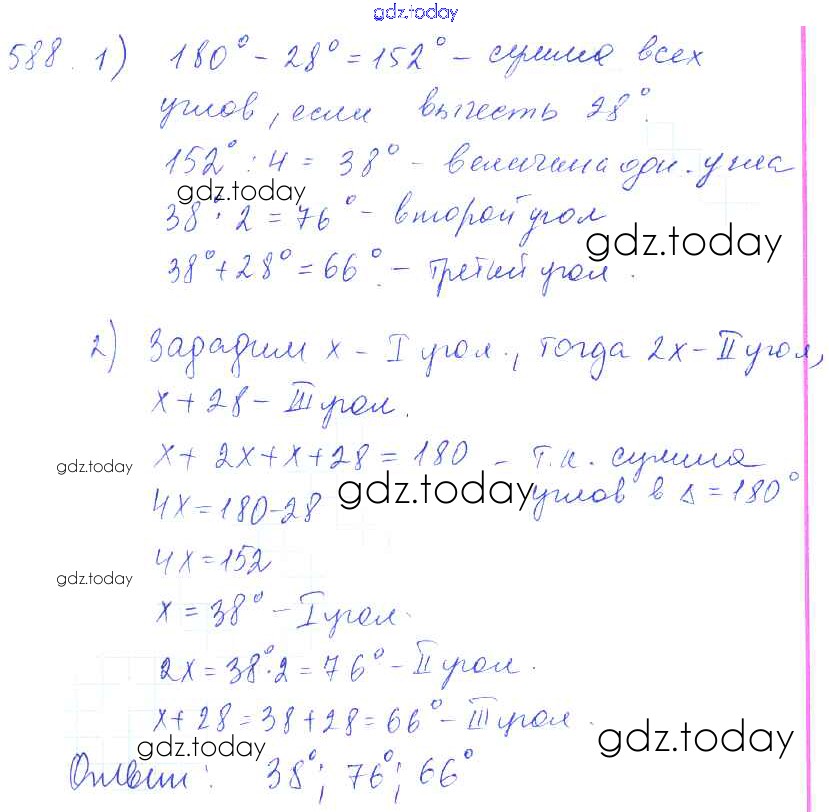 gdz.today
588. 1) 180° - 28° = 152° - сумма всех
углов, если вычесть 28°.
152° : 4 = 38° - величина одн. угла
gdz.today
38° · 2 = 76° - второй угол
gdz.today
38° + 28° = 66° - третий угол.
2) Зададим x - I угол, тогда 2x - II угол,
x + 28 - III угол.
x + 2x + x + 28 = 180 - т.к. сумма
gdz.today
углов в Δ = 180°
4x = 180-28
gdz.today
4x = 152
gdz.today
x = 38° - I угол.
2x = 38°·2 = 76° - II угол.
x + 28 = 38 + 28 = 66° - III угол.
gdz.today
gdz.today
Ответ: 38°; 76°; 66°